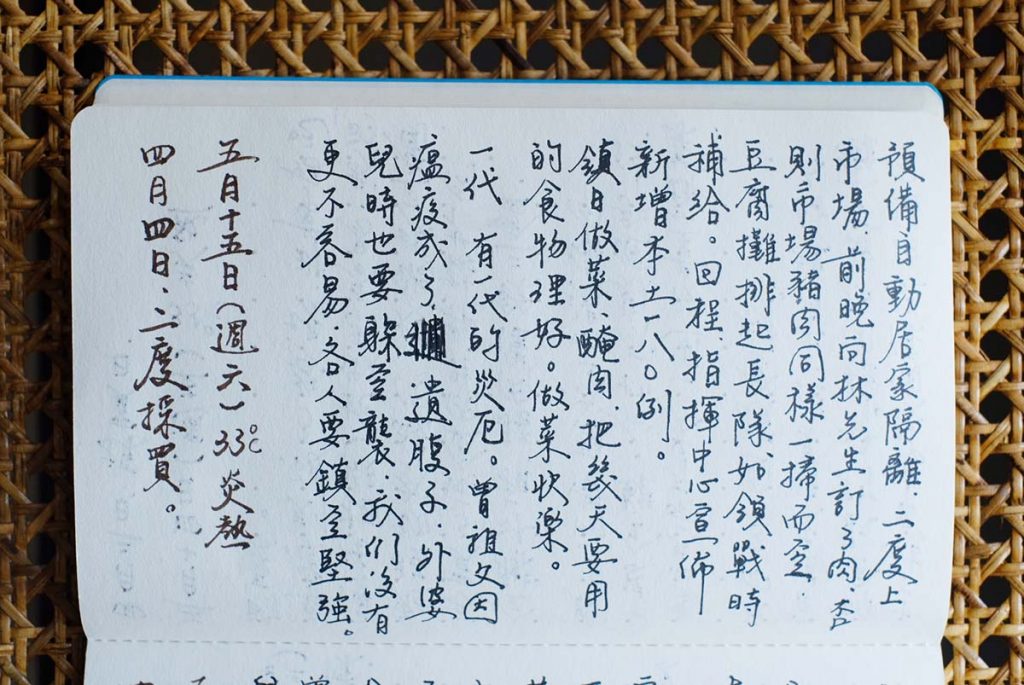 預備自動居家隔離.二度上
市場.前晚向林先生訂了肉.否
則市場豬肉同樣一掃而空.
豆腐攤排起長隊.如領戰時
補給。回程.指揮中心宣佈
新增本土一八〇例。
鎮日做菜、醃肉.把幾天要用
的食物理好。做菜快樂。
一代 有一代的災厄。曾祖父因
瘟疫成了遺腹子.外婆
兒時也要躲空襲.我們沒有
更不容易.各人要鎮定堅強。
五月十五日(週六)33℃炎熱
四月四日、二度採買。